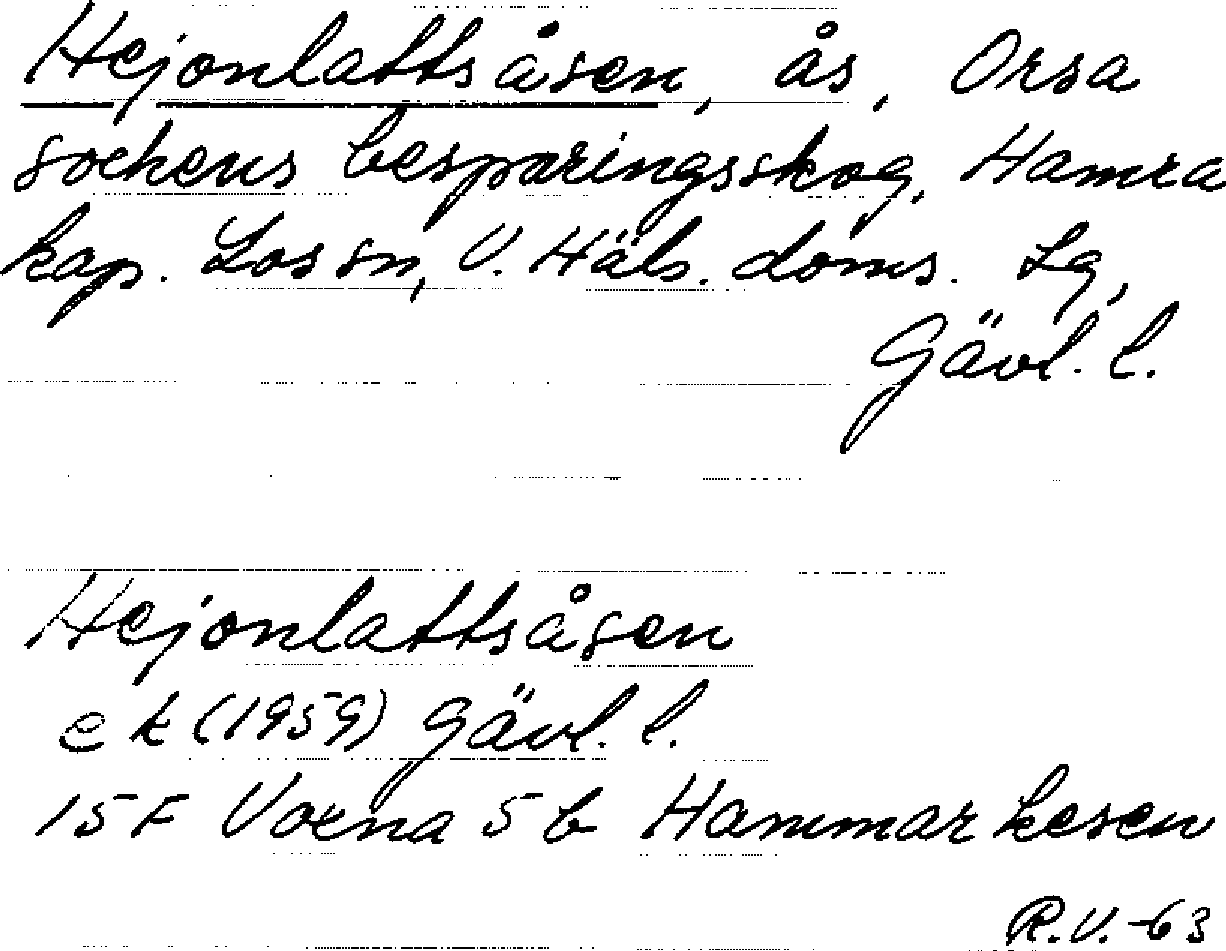 Hejonlattsåsen, ås, Orsa
sockens besparingsskog, Hamra
kap. Los sn, V. Häls. doms. Lg,
Gävl. l.
Hejonlattsåsen
e k (1959) Gävl. l.
15 F Voxna 5 b Hammarkesen
R.V. -63